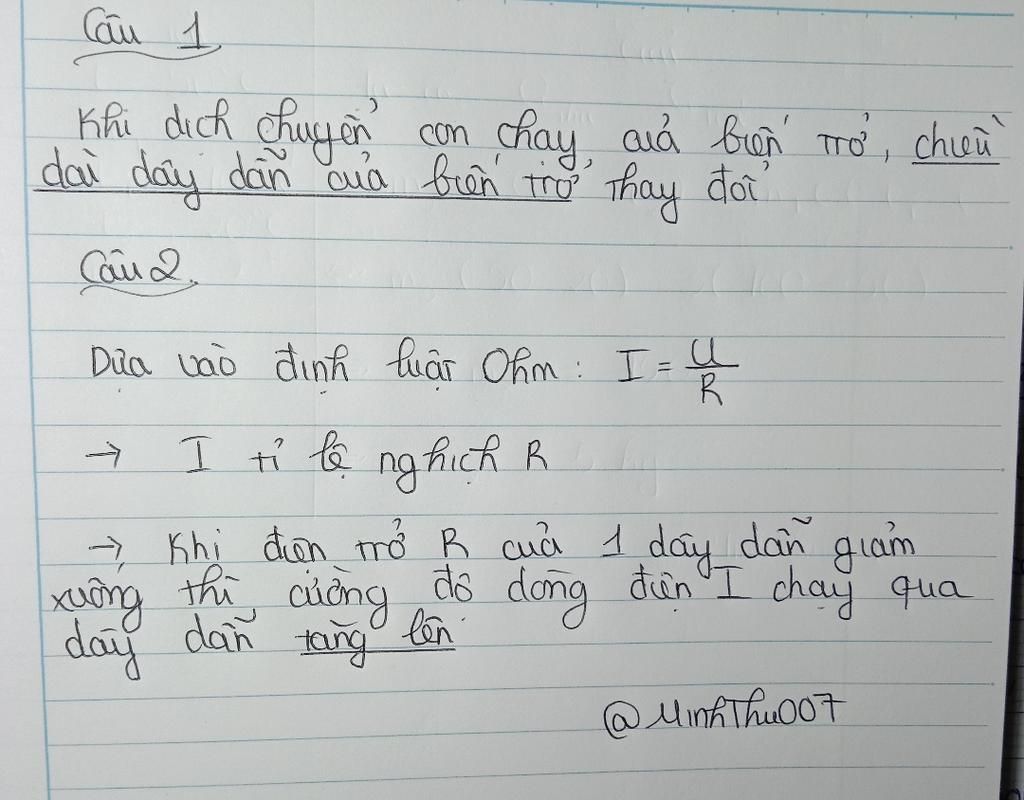 Câu 1
Khi dịch chuyển con chạy của biến trở, chiều
dài dây dẫn của biến trở thay đổi
Câu 2.
Dựa vào định luật Ohm: I = U/R
→ I tỉ lệ nghịch R
→ Khi điện trở R của 1 dây dẫn giảm
xuống thì cường độ dòng điện I chạy qua
dây dẫn tăng lên
@MinhThu007